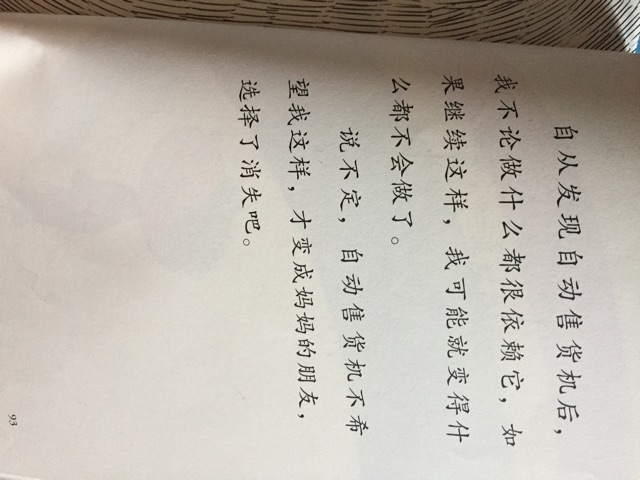 自从发现自动售货机后，
我不论做什么都很依赖它，如
果继续这样，我可能就变得什
么都不会做了。
说不定，自动售货机不希
望我这样，才变成妈妈的朋友，
选择了消失吧。
93